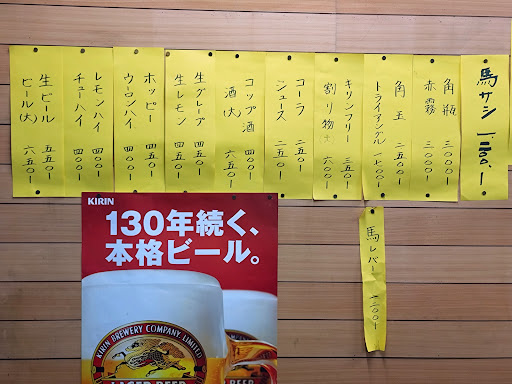 馬サシ 一、二〇〇、ー
角瓶 三〇〇〇ー
赤霧 三〇〇〇ー
角玉 二五〇〇ー
トライアングル 一七〇〇ー
キリンフリー 三五〇ー
割り物 六〇〇ー
コーラ 二五〇ー
ジュース 二五〇ー
コップ酒 四五〇ー
酒(大) 六五〇ー
生グレープ 四五〇ー
生レモン 四五〇ー
ホッピー 四五〇ー
ウーロンハイ 四〇〇ー
レモンハイ 四〇〇ー
チューハイ 四〇〇ー
生ビール 五五〇ー
ビール(大) 六五〇ー
馬レバー 一二〇〇ー
KIRIN
130年続く、
本格ビール。
KIRIN BREWERY COMPANY, LIMITED
LAGER BEER